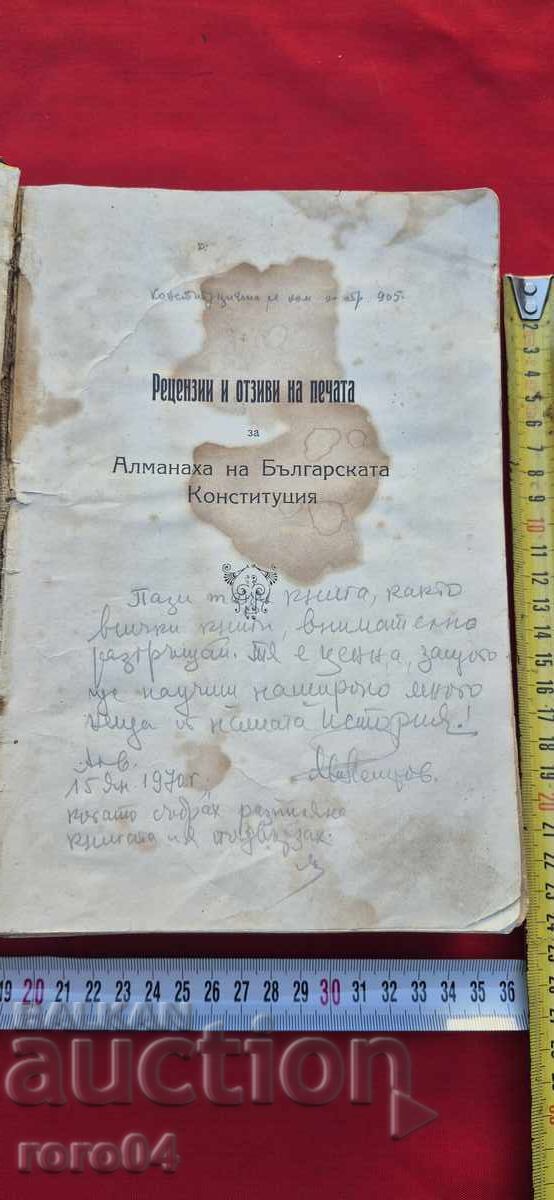 Рецензии и отзиви на печата
за
Алманаха на Българската
Конституция
Пази книга, както
всички книги, внимателно
разгръщай. Тя е ценна, защото
ще научиш нашироко много
неща от нашата история!
15 Ян. 1970 г.
когато събрах разпиляна
книгата и я подвързах.
19 20 21 22 23 24 25 26 27 28 29 30 31 32 33 34 35 36
2 3 4 5 6 7 8 9 10 11 12 13 14 15 16 17 18 19 20 21 22 23 24 25 26
BALKAN
auction
roro04